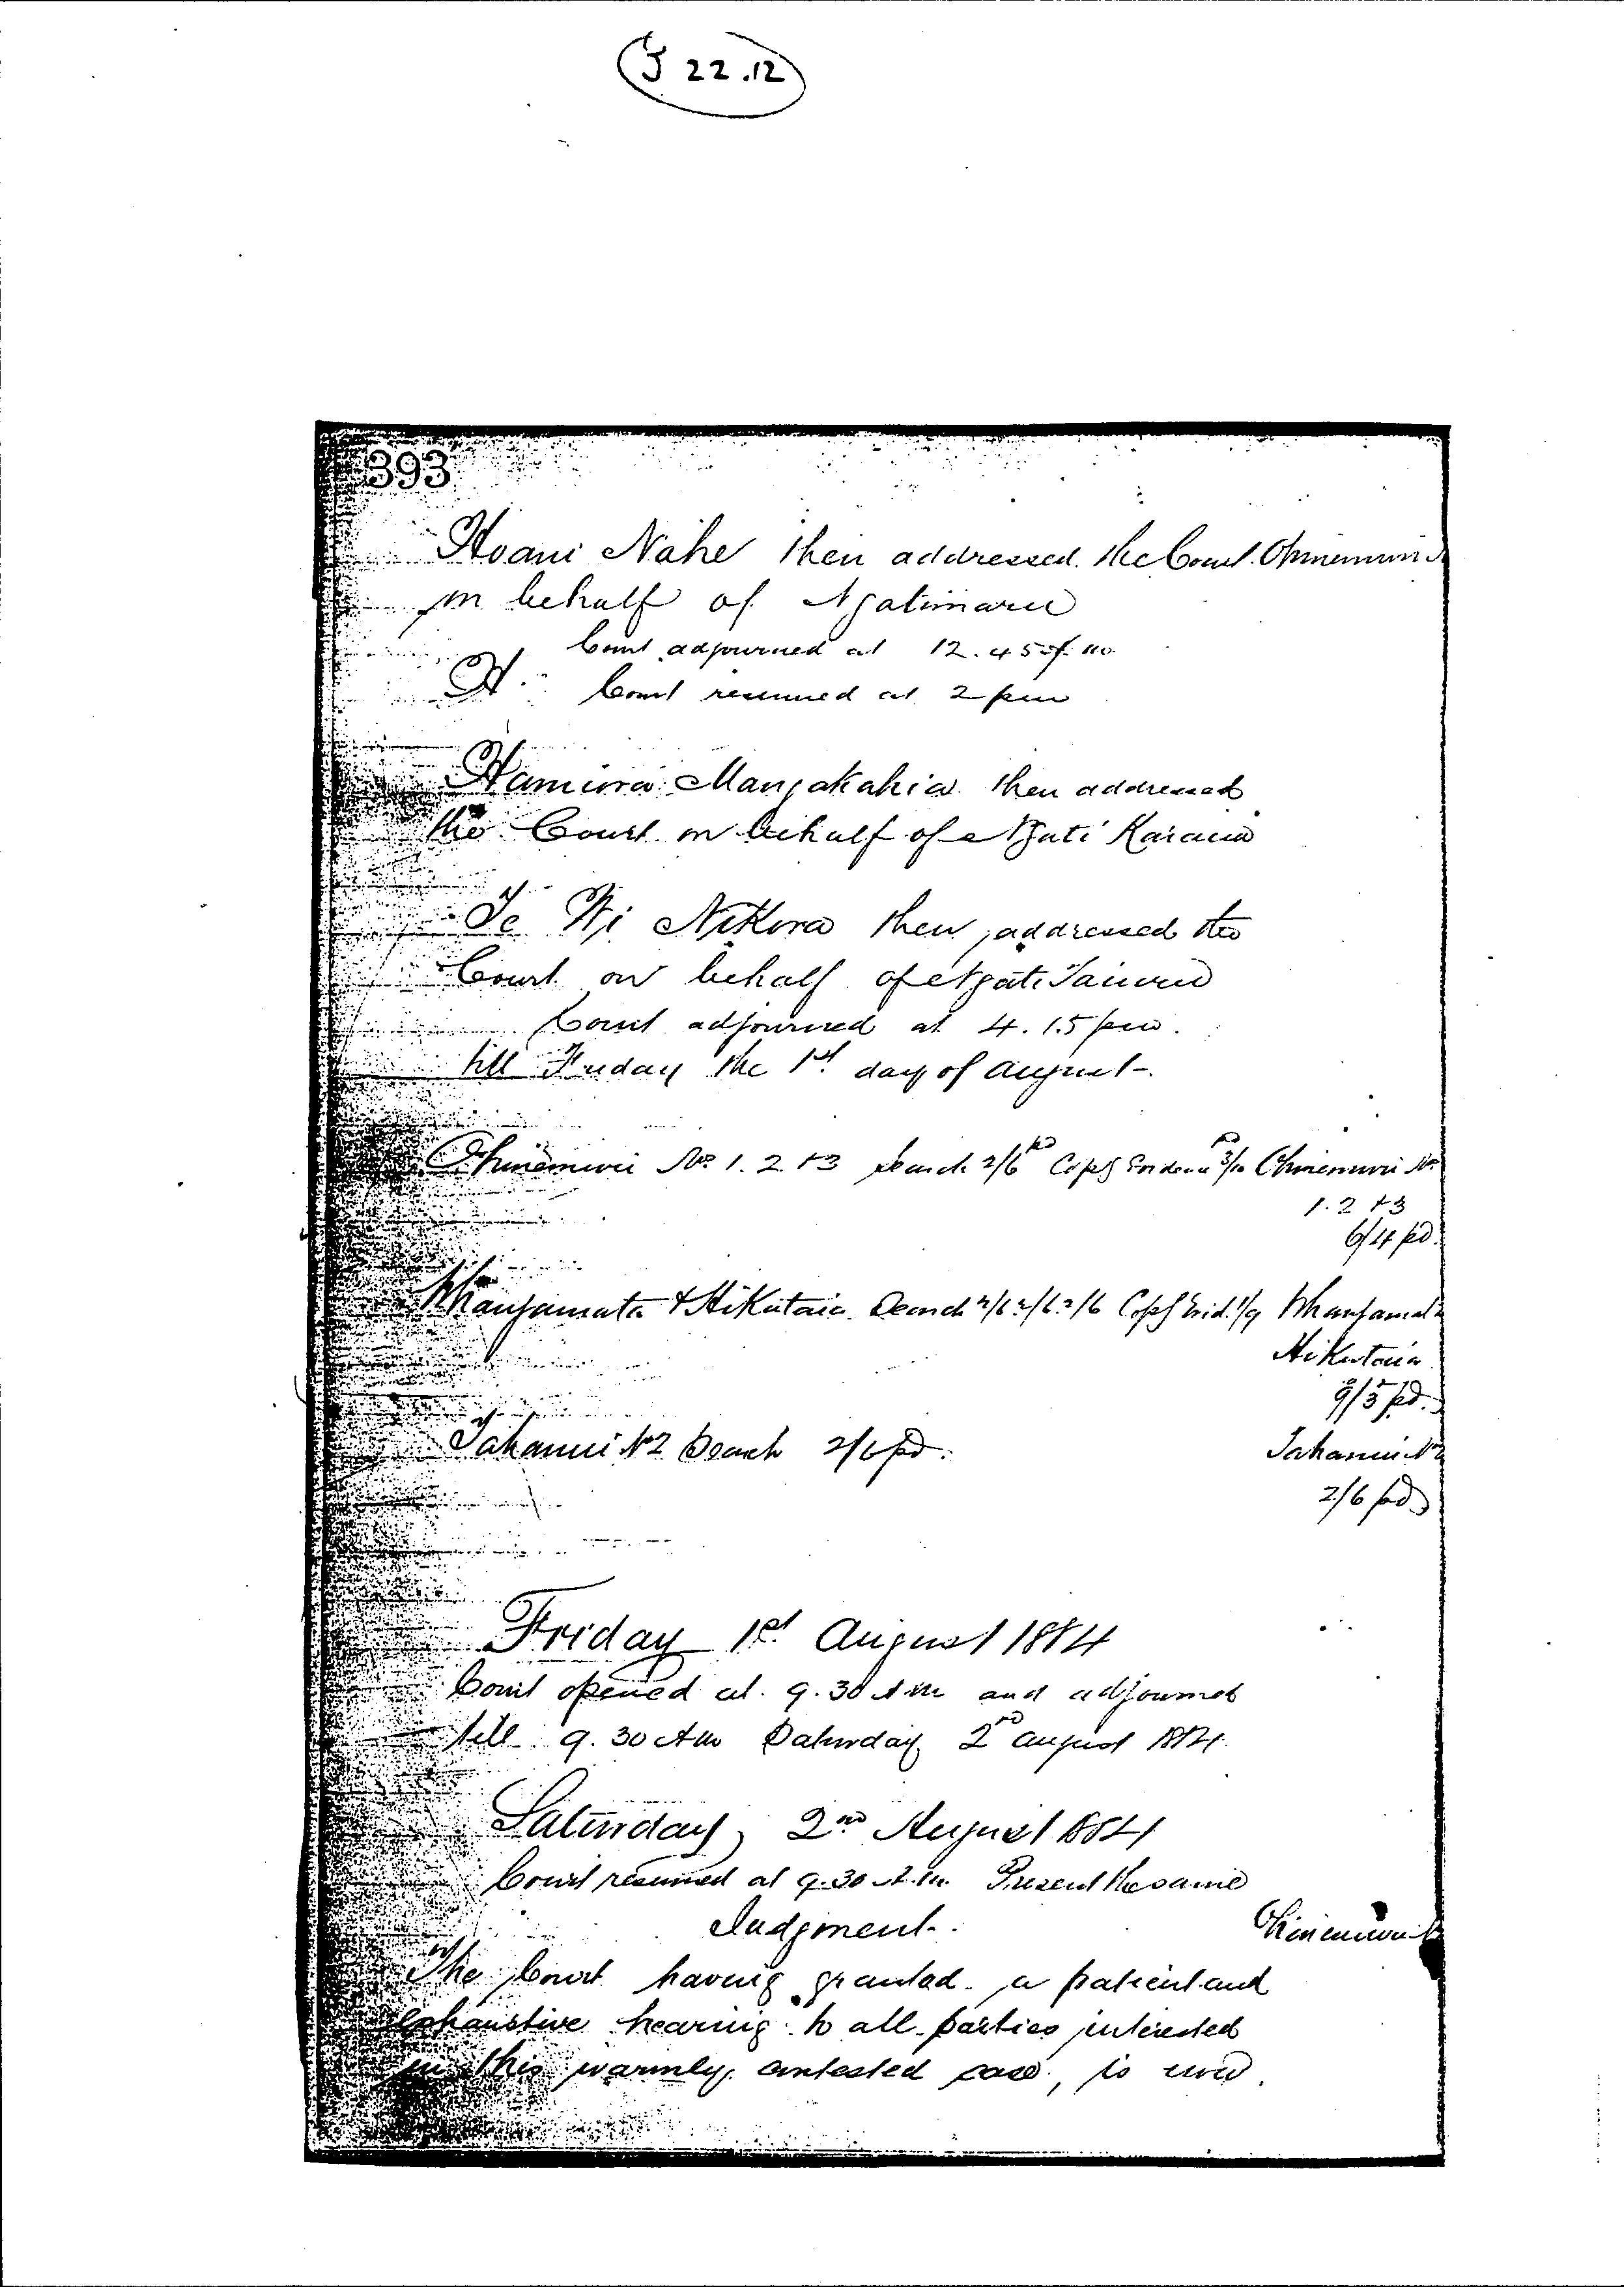 J 22.12
393
Hoani Nahe then addressed the Court Ohinemuri
on behalf of Ngatimaru
Court adjourned at 12.45 p.m.
H Court resumed at 2 pm
Hamiora Mangakahia then addressed
the Court on behalf of Ngati Karaua
Te Wi Nikora then addressed the
Court on behalf of Ngati Taiuru
Court adjourned at 4.15 pm.
till Friday the 1st day of August.
Ohinemuri No 1.2 + 3 Search 2/6 pd Copy Evidence 3/10 pd Ohinemuri No
1.2 + 3
6/4 pd.
Whangamata + Hikutaia Search 2/6 2/6 2/6 Copy Evid. 1/9 Whangamata
Hikutaia
9/3 pd.
Tahanui No 2 Search 2/6 pd. Tahanui No 2
2/6 pd
Friday 1st August 1884
Court opened at 9.30 Am and adjourned
till 9.30 Am Saturday 2nd August 1884.
Saturday, 2nd August 1884
Court resumed at 9.30 A.m. Present the same
Judgment. Ohinemuri
The Court having granted a patient and
exhaustive hearing to all parties interested
in this warmly contested case, is now